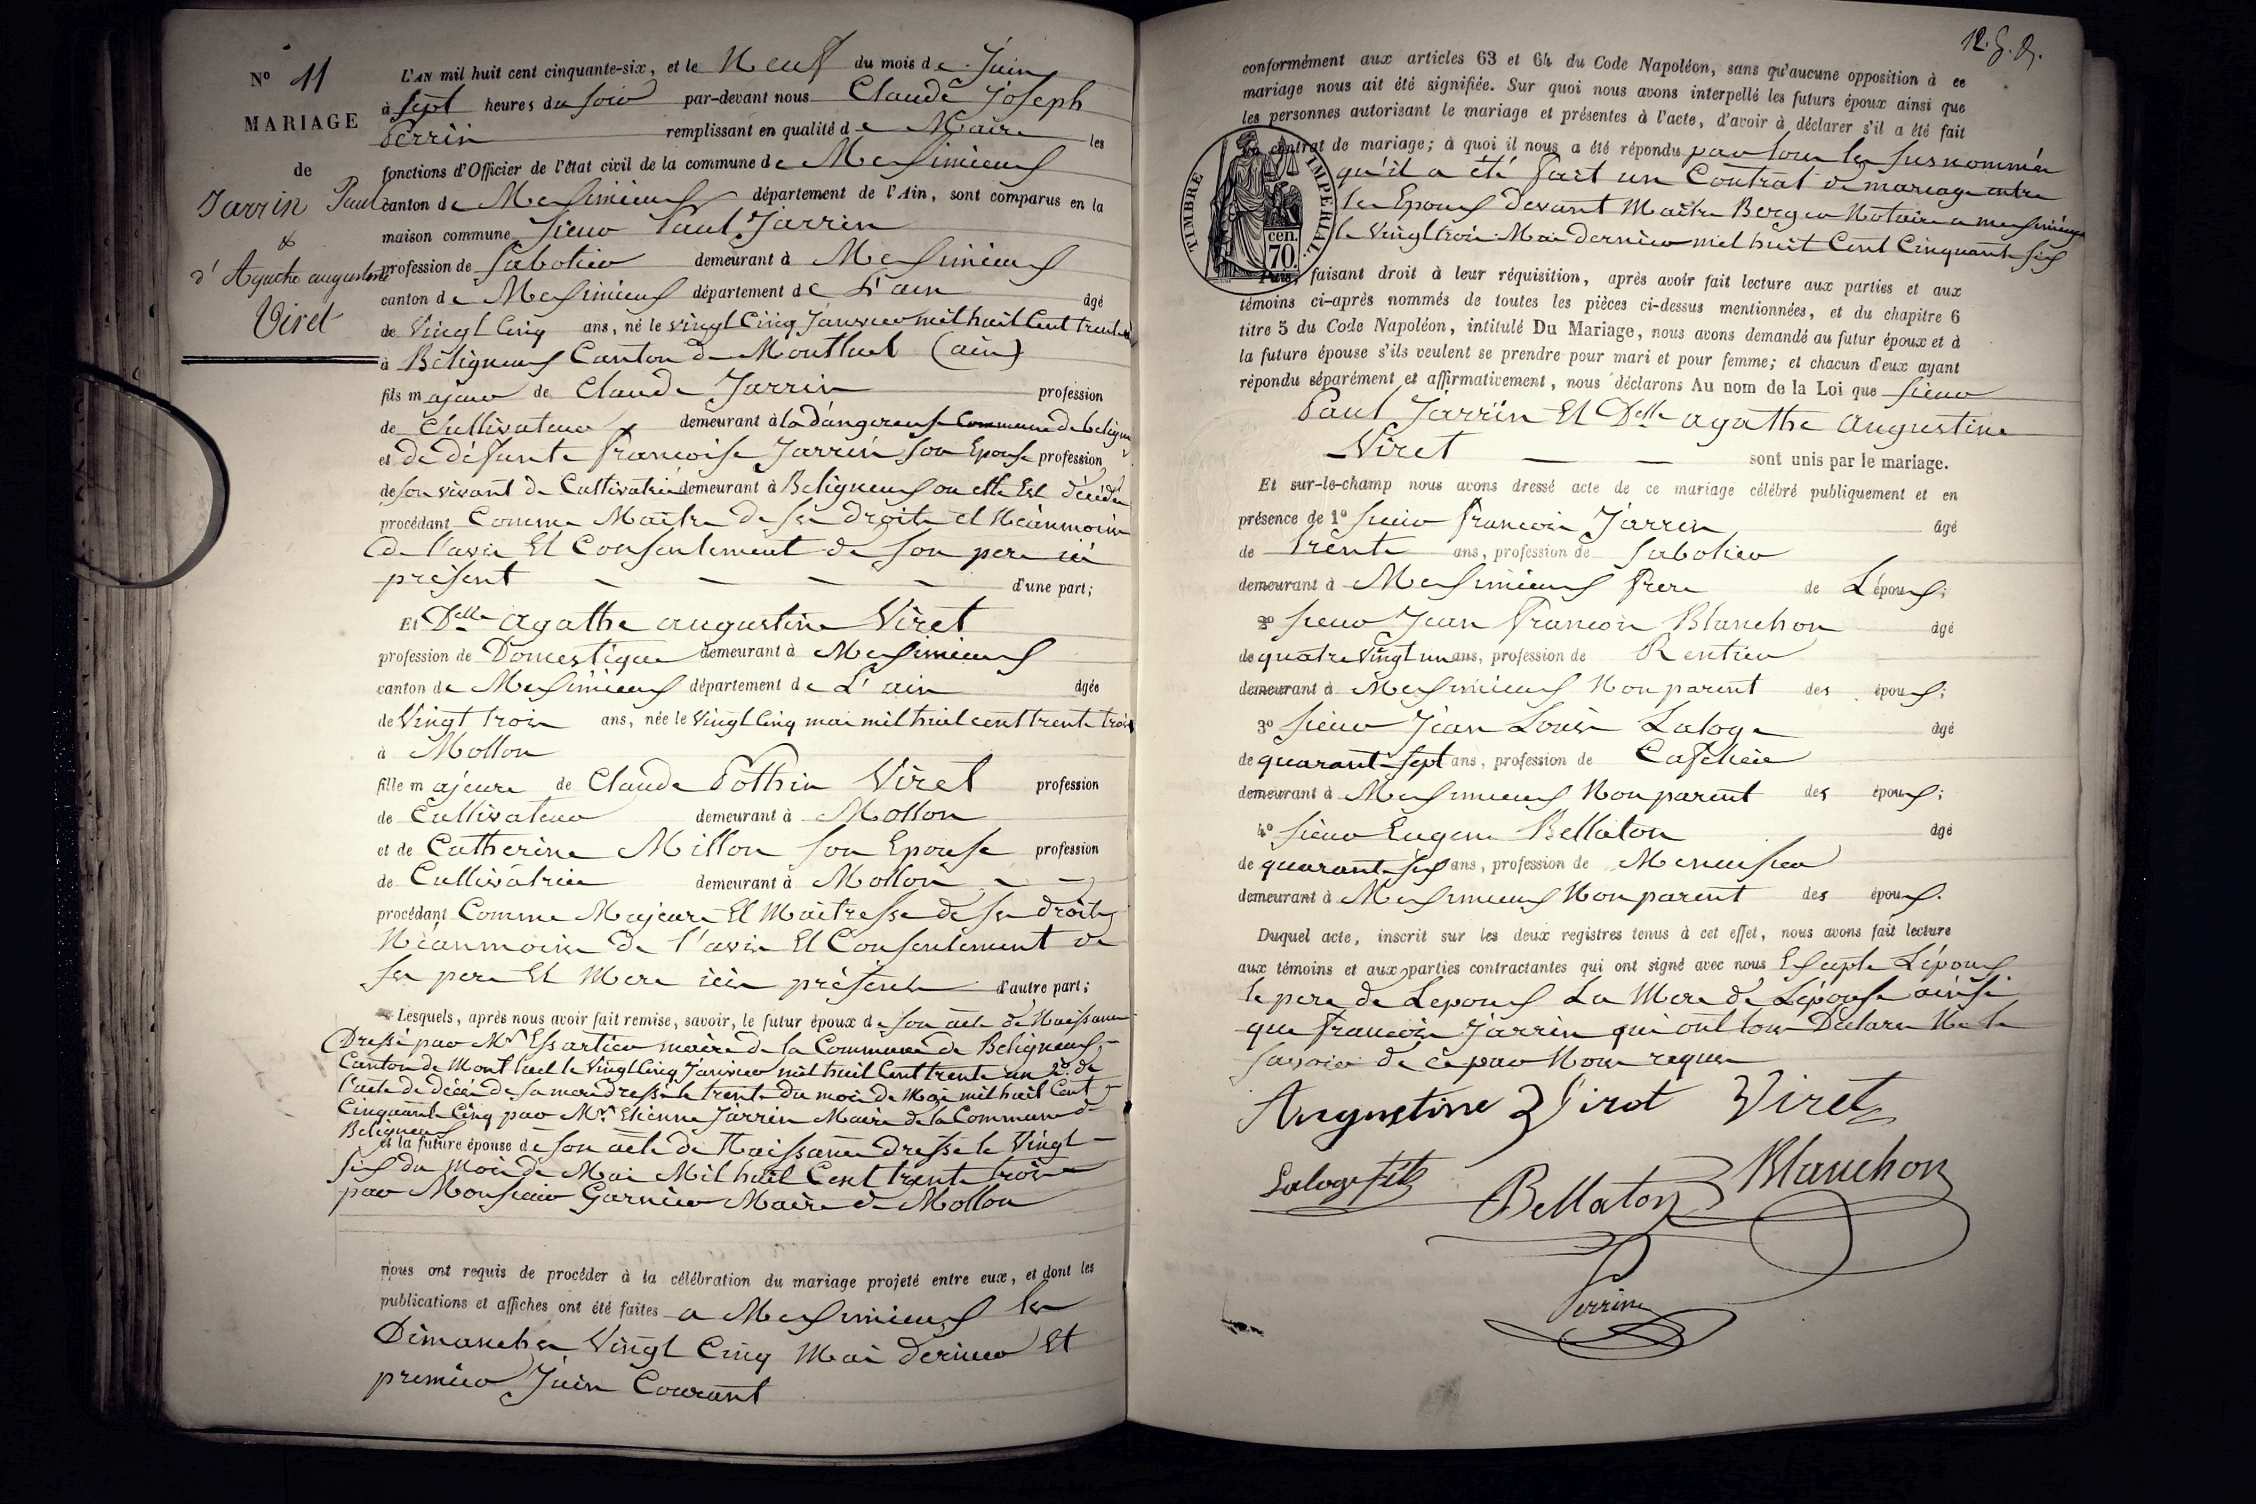 N° 11
MARIAGE
de
Jarrin Paul
&
d'Agathe augustine
Viret
L'AN mil huit cent cinquante-six, et le Neuf du mois de Juin
à Sept heures du soir par-devant nous Claude Joseph
Perrin remplissant en qualité de Maire les
fonctions d'Officier de l'état civil de la commune de Meximieux
canton de Meximieux département de l'Ain, sont comparus en la
maison commune Sieur Paul Jarrin
profession de Sabotier demeurant à Meximieux
canton de Meximieux département de L'ain âgé
de Vingt Cinq ans, né le vingt Cinq Janvier mil huit Cent trente un
à Béligneux Canton de Montluel (ain)
fils majeur de Claude Jarrin profession
de Cultivateur demeurant à la Dangereuse Commune de beligneux
et de défunte françoise Jarrin son Epouse profession
de son vivant de Cultivatrice demeurant à Beligneux ou elle Est décédée
procédant Comme Maitre de ses droits et Néanmoins
de l'avis Et Consentement de son pere ici
présent d'une part;
Et Delle agathe augustine Viret
profession de Domestique demeurant à Meximieux
canton de Meximieux département de L'ain âgée
de Vingt trois ans, née le vingt Cinq mai mil huit cent trente trois
à Mollon
fille majeure de Claude Pothin Viret profession
de Cultivateur demeurant à Mollon
et de Catherine Millon son Epouse profession
de Cultivatrice demeurant à Mollon
procédant Comme Majeure Et Maitresse de ses droits
Néanmoins de l'avis Et Consentement de
ses pere Et Mere icis présents d'autre part;
Lesquels, après nous avoir fait remise, savoir, le futur époux de son acte de Naissance
Dressé par Mr Essartier maire de la Commune de Beligneux
Canton de Montluel le Vingt Cinq Janvier mil huit Cent trente un 2° de
l'acte de décés de sa mere dressé le trente du mois de Mai mil huit Cent
Cinquante Cinq par Mr Etienne Jarrin Maire de la Commune de
Beligneux
et la future épouse de son acte de Naissance dressé le Vingt
Six du Mois de Mai Mil huit Cent trente trois
par Monsieur Garnier Maire de Mollon
nous ont requis de procéder à la célébration du mariage projeté entre eux, et dont les
publications et affiches ont été faites a Meximieux les
Dimanches Vingt Cinq Mai dernier Et
premier Juin Courant
conformément aux articles 63 et 64 du Code Napoléon, sans qu'aucune opposition à ce
mariage nous ait été signifiée. Sur quoi nous avons interpellé les futurs époux ainsi que
les personnes autorisant le mariage et présentes à l'acte, d'avoir à déclarer s'il a été fait
un contrat de mariage; à quoi il nous a été répondu par tous les susnommés
qu'il a été fait un Contrat de mariage entre
les Epoux devant Maitre Berger Notaire a meximieux
le vingt trois Mai dernier mil huit Cent Cinquante six
TIMBRE IMPERIAL.
cen.
70.
Puis, faisant droit à leur réquisition, après avoir fait lecture aux parties et aux
témoins ci-après nommés de toutes les pièces ci-dessus mentionnées, et du chapitre 6
titre 5 du Code Napoléon, intitulé Du Mariage, nous avons demandé au futur époux et à
la future épouse s'ils veulent se prendre pour mari et pour femme; et chacun d'eux ayant
répondu séparément et affirmativement, nous déclarons Au nom de la Loi que Sieur
Paul Jarrin Et Delle agathe augustine
Viret sont unis par le mariage.
Et sur-le-champ nous avons dressé acte de ce mariage célébré publiquement et en
présence de 1° Sieur françois Jarrin âgé
de Trente ans, profession de Sabotier
demeurant à Meximieux frere de L'époux;
2° Sieur Jean françois Blanchon âgé
de quatre vingt un ans, profession de Rentier
demeurant à Meximieux Non parent des époux;
3° Sieur Jean Louis Laloge âgé
de quarante Sept ans, profession de Caffetier
demeurant à Meximieux Non parent des époux;
4° Sieur Eugene Bellaton âgé
de quarante Six ans, profession de Menuisier
demeurant à Meximieux Non parent des époux.
Duquel acte, inscrit sur les deux registres tenus à cet effet, nous avons fait lecture
aux témoins et aux parties contractantes qui ont signé avec nous Excepté L'époux
le pere de Lepoux La Mere de L'épouse ainsi
que françois Jarrin qui ont tous Declaré Ne le
savoir de ce par Nous requis
Augustine Virot Viret
Laloge fils Bellaton Blanchon
Perrin